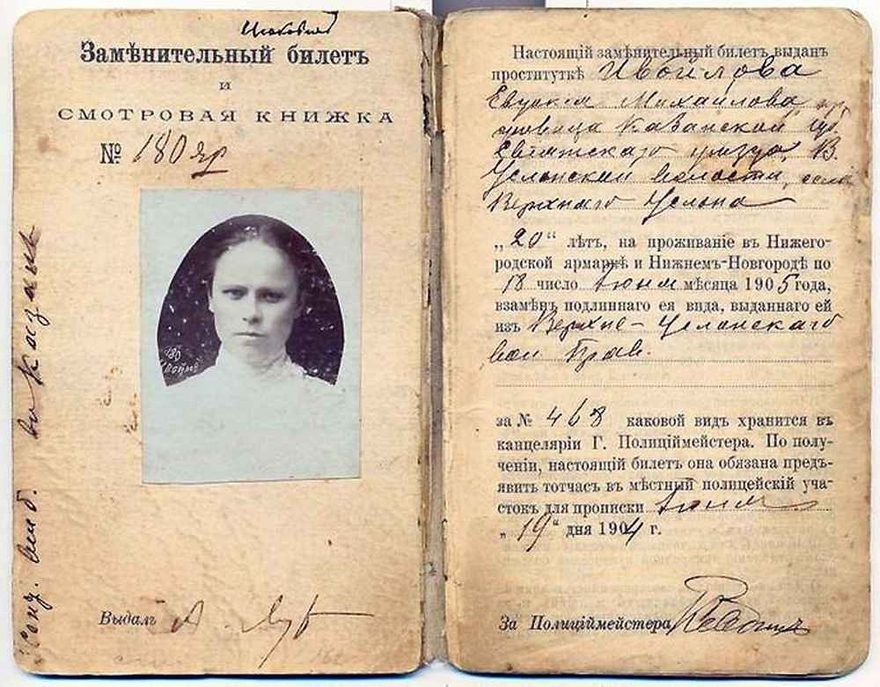 Замѣнительный билетъ
и
СМОТРОВАЯ КНИЖКА
№ 180 яр
180
въ Казань
Выдалъ
Настоящій замѣнительный билетъ выданъ
проституткѣ Ивойлова
Евдокія Михайлова, кр
Казанской губ
уѣзда, В.
Услонской волости, села
Верхняго Услона
„20“ лѣтъ, на проживаніе въ Нижего-
родской ярмаркѣ и Нижнемъ-Новгородѣ по
18 число Іюня мѣсяца 1905 года,
взамѣнъ подлиннаго ея вида, выданнаго ей
изъ Верхне-Услонскаго
вол Прав.
за № 468 каковой видъ хранится въ
канцеляріи Г. Полиціймейстера. По полу-
ченіи, настоящій билетъ она обязана предъ-
явить тотчасъ въ мѣстный полицейскій уча-
стокъ для прописки Іюня
„19“ дня 1904 г.
За Полиціймейстера